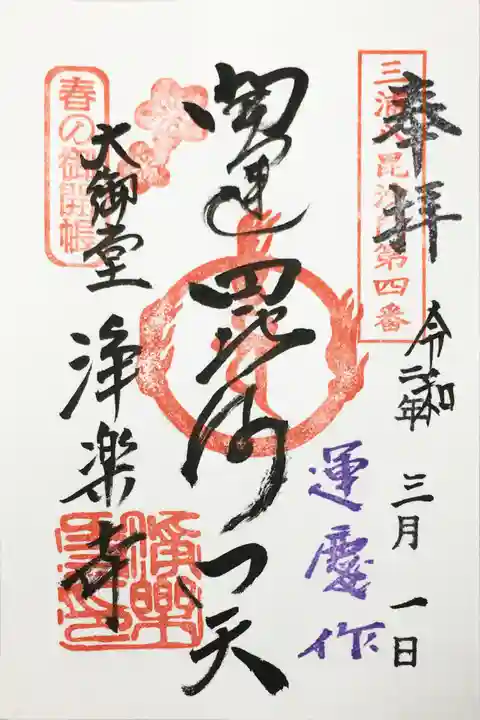 奉拝
三浦 毘沙門第四番
令和二年
三月一日
運慶作
開運
毘沙門天
春の御開帳
大御堂
浄楽寺